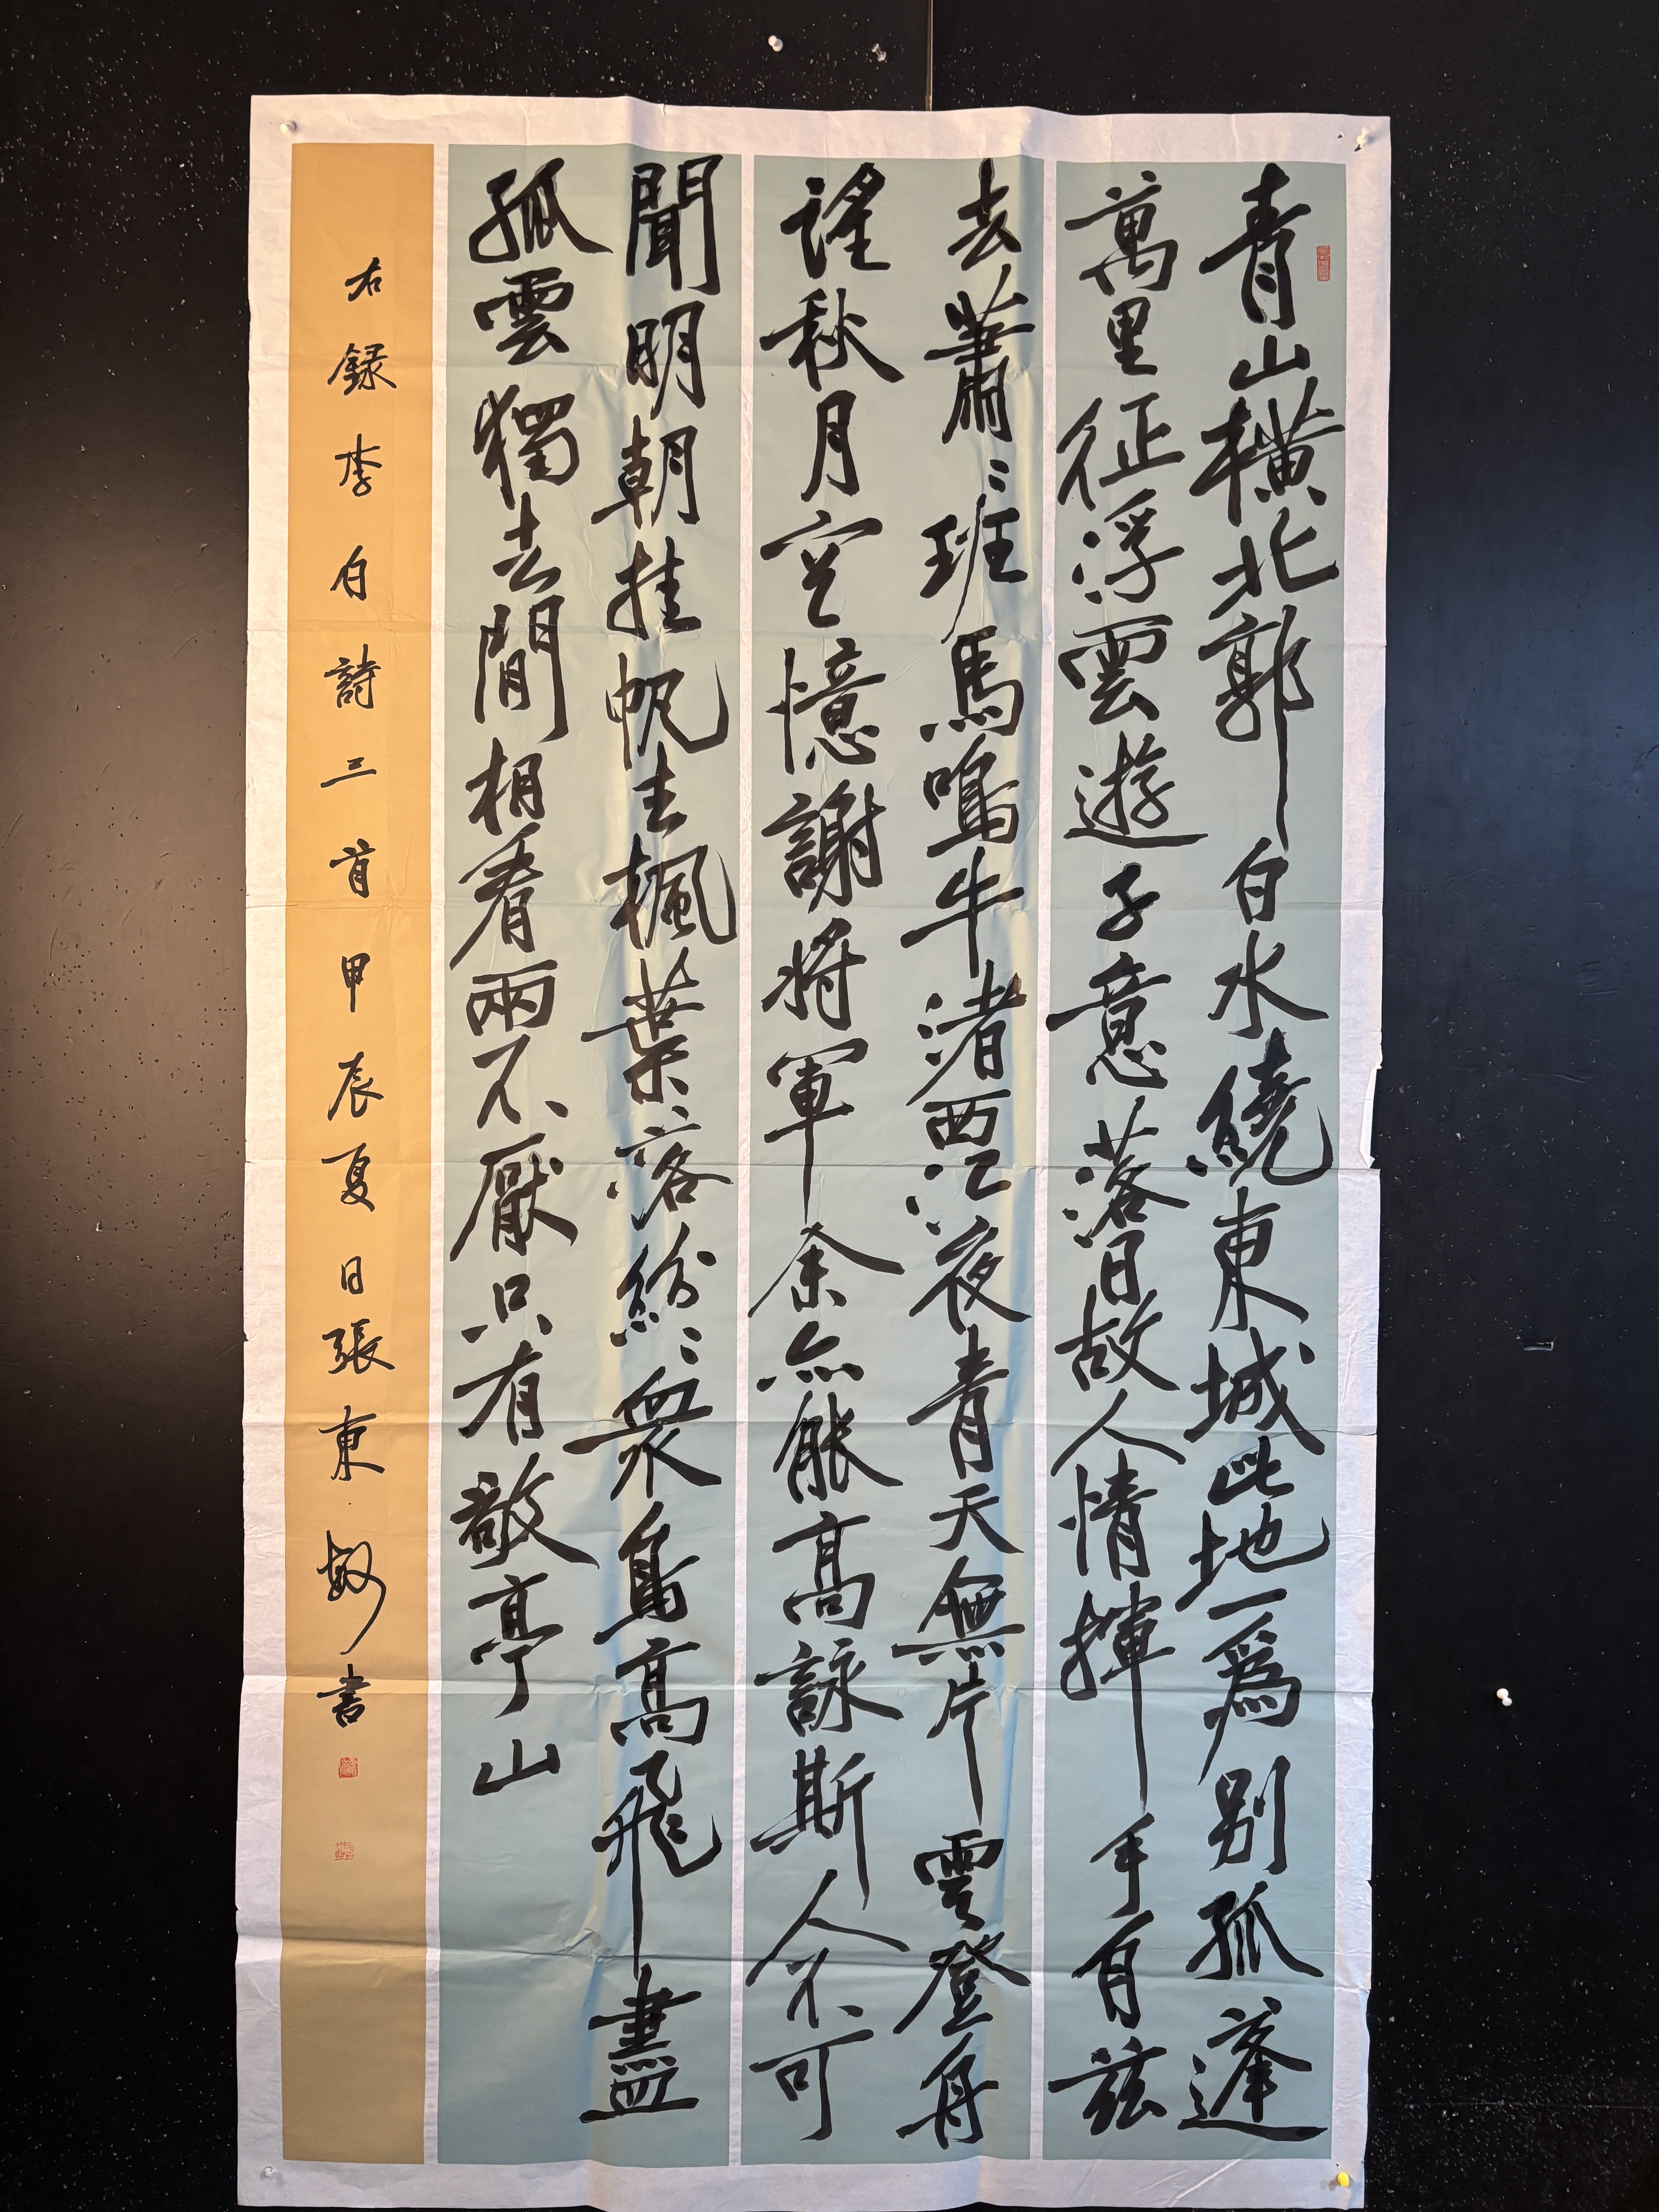 青山橫北郭白水繞東城此地一爲别孤蓬
萬里征浮雲遊子意落日故人情揮手自茲
去蕭〻班馬鳴牛渚西江夜青天無片雲登舟
望秋月空憶謝將軍余亦能高詠斯人不可
聞明朝挂帆去楓葉落紛〻衆鳥高飛盡
孤雲獨去閒相看兩不厭只有敬亭山
右録李白詩三首甲辰夏日張東書